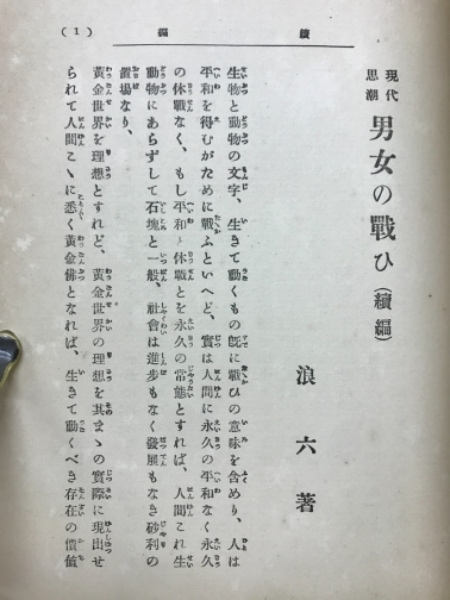 續編
(1)
現代思潮 男女の戰ひ（續編）
浪六著
生物と動物の文字、生きて動くもの既に戰ひの意味を含めり、人は
平和を得むがために戰ふといへど、實は人間に永久の平和なく永久
の休戰なく、もし平和と休戰とを永久の常態とすれば、人間これ生
動物にあらずして石塊と一般、社會は進步もなく發展もなき砂利の
置場なり、
黃金世界を理想とすれど、黃金世界の理想を其まゝの實際に現出せ
られて人間こゝに悉く黃金佛となれば、生きて動くべき存在の價値